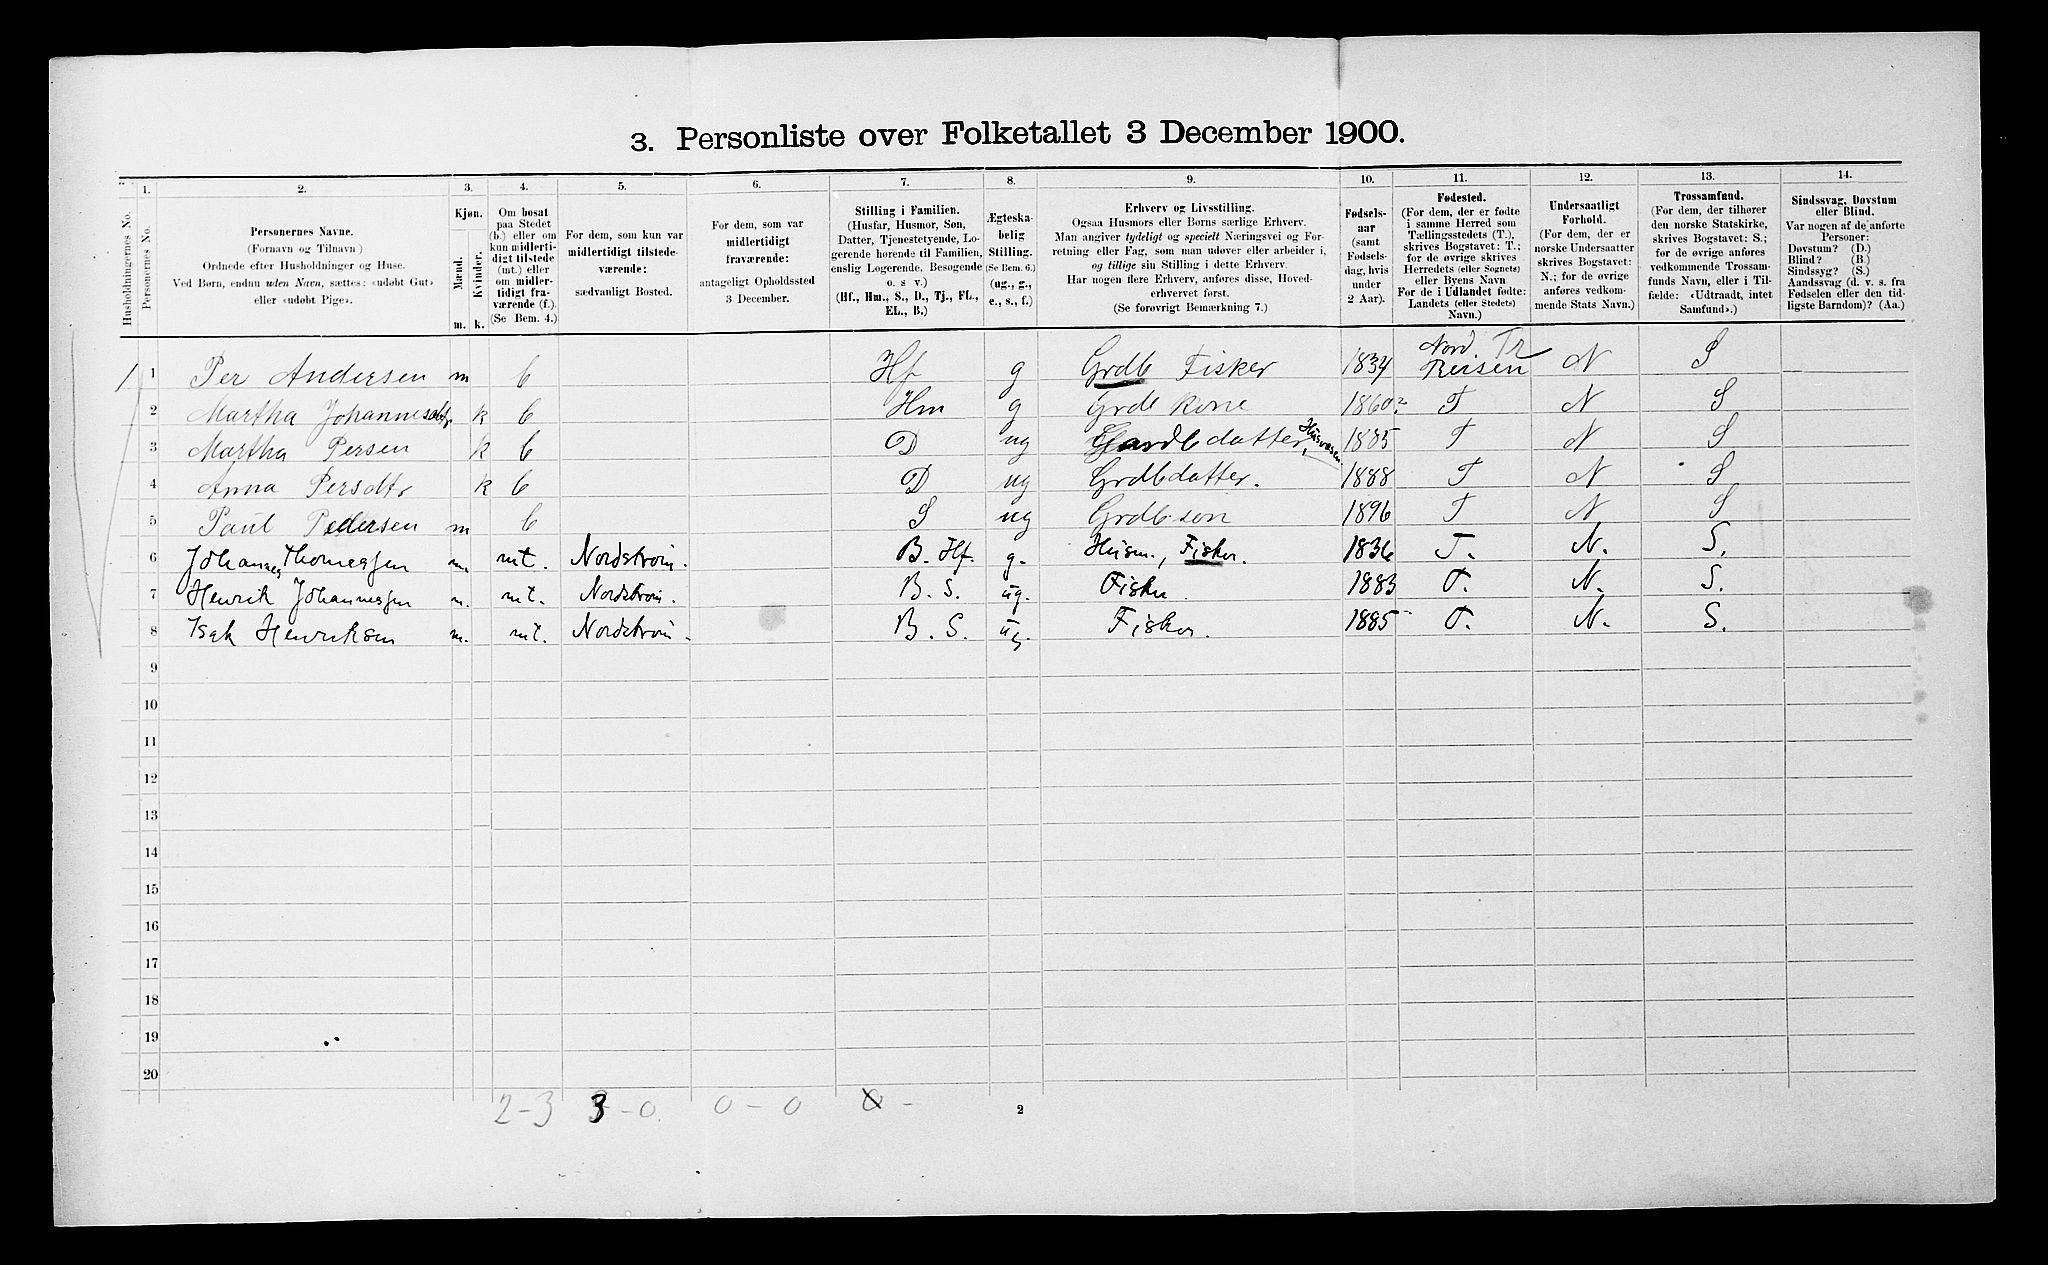 3. Personliste over Folketallet 3 December 1900.
Husholdningernes No.
1. Personernes No.
2. Personernes Navne.
(Fornavn og Tilnavn)
Ordnede efter Husholdninger og Huse.
Ved Børn, endnu uden Navn, sættes: «udøbt Gut»
eller «udøbt Pige».
3. Kjøn.
Mænd. m.
Kvinder. k.
4. Om bosat
paa Stedet
(b.) eller om
kun midlerti-
digt tilstede
(mt.) eller
om midler-
tidigt fra-
værende (f.)
(Se Bem. 4.)
5. For dem, som kun var
midlertidigt tilstede-
værende:
sædvanligt Bosted.
6. For dem, som var
midlertidigt
fraværende:
antageligt Opholdssted
3 December.
7. Stilling i Familien.
(Husfar, Husmor, Søn,
Datter, Tjenestetyende, Lo-
gerende hørende til Familien,
enslig Logerende, Besøgende
o. s. v.)
(Hf., Hm., S., D., Tj., FL.,
EL., B.)
8. Ægteska-
belig
Stilling.
(Se Bem. 6.)
(ug., g.,
e., s., f.)
9. Erhverv og Livsstilling.
Ogsaa Husmors eller Børns særlige Erhverv.
Man angiver tydeligt og specielt Næringsvei og For-
retning eller Fag, som man udøver eller arbeider i,
og tillige sin Stilling i dette Erhverv.
Har nogen flere Erhverv, anføres disse, Hoved-
erhvervet først.
(Se forøvrigt Bemærkning 7.)
10. Fødsels-
aar
(samt
Fødsels-
dag, hvis
under
2 Aar).
11. Fødested.
(For dem, der er fødte
i samme Herred som
Tællingsstedets (T.),
skrives Bogstavet: T.;
for de øvrige skrives
Herredets (eller Sognets)
eller Byens Navn
For de i Udlandet fødte:
Landets (eller Stedets)
Navn.)
12. Undersaatligt
Forhold.
(For dem, der er
norske Undersaatter
skrives Bogstavet:
N.; for de øvrige
anføres vedkom-
mende Stats Navn.)
13. Trossamfund.
(For dem, der tilhører
den norske Statskirke,
skrives Bogstavet: S.;
for de øvrige anføres
vedkommende Trossam-
funds Navn, eller i Til-
fælde: «Udtraadt, intet
Samfund».)
14. Sindssvag, Døvstum
eller Blind.
Var nogen af de anførte
Personer:
Døvstum? (D.)
Blind? (B.)
Sindssyg? (S.)
Aandssvag (d. v. s. fra
Fødselen eller den tid-
ligste Barndom)? (Aa.)
1 1 Per Andersen m b Hf g Grdb Fisker 1834 Nord Reisen Tr N S
2 Martha Johannesdtr k b Hm g Grdb kone 1860? T N S
3 Martha Persen k b D ug Gardb datter, Husvæsen 1885 T N S
4 Anna Persdtr k b D ug Grdbdatter. 1888 T N S
5 Paul Pedersen m b S ug Grdb. søn 1896 T N S
6 Johannes Thomessen m. mt. Nordstrøm. B. Hf. g. Husm., Fisker. 1836 T. N. S.
7 Henrik Johannessen m. mt. Nordstrøm. B. S. ug. Fisker. 1883 T. N. S.
8 Isak Henriksen m. mt. Nordstrøm. B. S. ug. Fisker. 1885 T. N. S.
9
10
11
12
13
14
15
16
17
18
19
20
2 - 3 3 - 0. 0 - 0 0 -
2